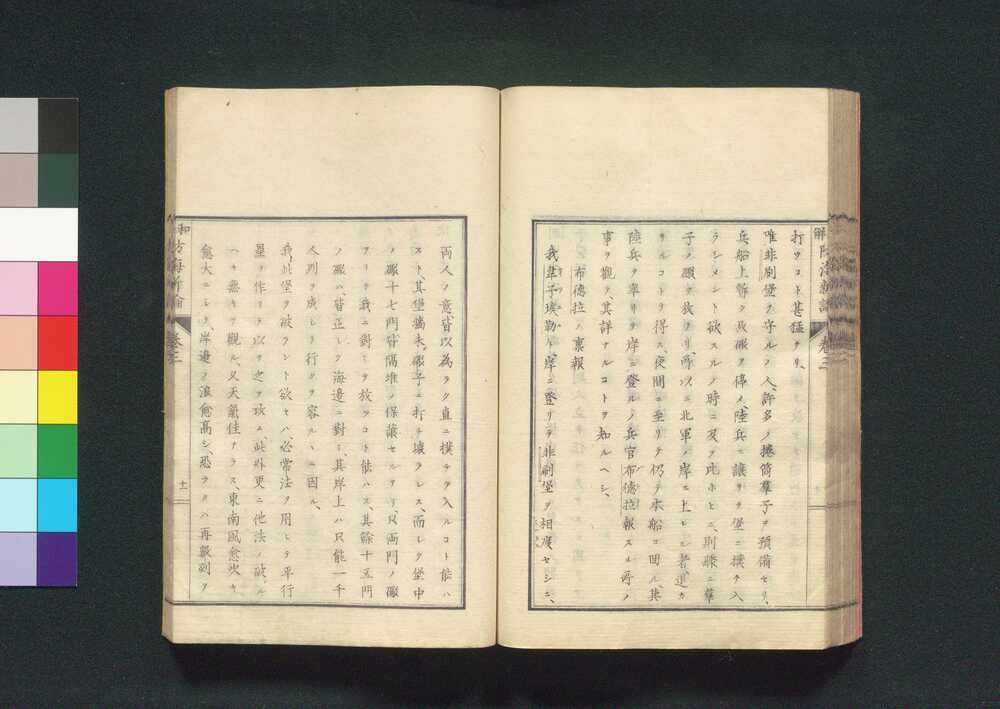 打ツコト甚猛ナリ、
唯非刷堡ヲ守ルノ人、許多ノ捲筒葦子ヲ預備セリ、
兵船上暫ク其礮ヲ停メ、陸兵ニ讓リテ堡ニ撲チ入
ラシメント欲スルノ時ニ及テ此ホヒニ、則膝ニ葦
子ノ礮ヲ放ツ、所以ニ北軍ノ岸ニ上ヒシ者進ム
サルコトヲ得ス、夜間ニ至リテ仍テ本船ニ回ル、其
陸兵ヲ率リテ岸ニ登ルノ兵官布德拉報スル所ノ
事ヲ觀テ其詳ナルコトヲ知ルヘシ、
布德拉ノ禀報
我韋子埃勒ト岸ニ登リテ非刷堡ヲ相度セシニ、
兩人ノ意、皆以為ラク直ニ撲チテ入ルコト能ハ
スト、其堡牆未礮子ニ打チ壞ラレス、而シテ堡中
ノ礮十七門皆隔堆ノ保護セルアリ、只兩門ノ礮
アリテ我ニ對シテ放ツコト能ハス、其餘十五門
ノ礮ハ、皆正シク海邊ニ對シ、其岸上ハ只能一千
人列ヲ成シテ行クヲ容ルヽニ因ル、
我此堡ヲ破ラント欲セハ必常法ヲ用ヒテ平行
壘ヲ作リテ以テ之ヲ攻ム、此外更ニ他法ノ破ル
ヘキ無キヲ觀ル、又天氣佳ナラス、東南風愈吹キ
愈大ニシテ、岸邊ノ浪愈高シ、恐ラクハ再報到ヲ
卷三
十一